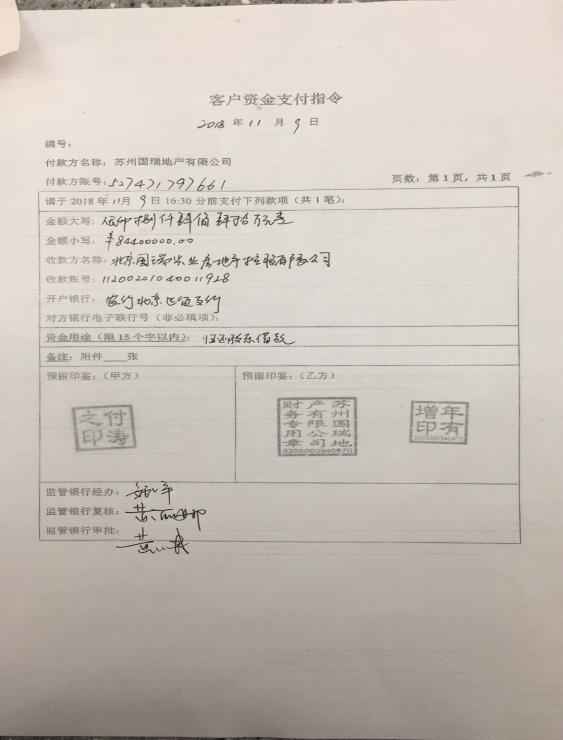 客户资金支付指令
2018 年 11 月 9 日
编号:
付款方名称: 苏州国瑞地产有限公司
付款方账号: 527471797661
页数: 第1页, 共1页
请于 2018 年 11 月 9 日 16:30 分前支付下列款项 (共 1 笔):
金额大写: 捌仟肆佰肆拾万元
金额小写: ¥84400000.00
收款方名称: 北京国瑞兴业房地产控股有限公司
收款账号: 11200201040011928
开户银行: 农行北京支行
对方银行电子联行号 (非必填项):
资金用途 (限 15 个字以内): 归还股东借款
备注: 附件____张
预留印鉴: (甲方)
预留印鉴: (乙方)
付涛之印
苏州国瑞地产有限公司财务专用章
3205060940870
年有增印
监管银行经办:
监管银行复核:
监管银行审批: